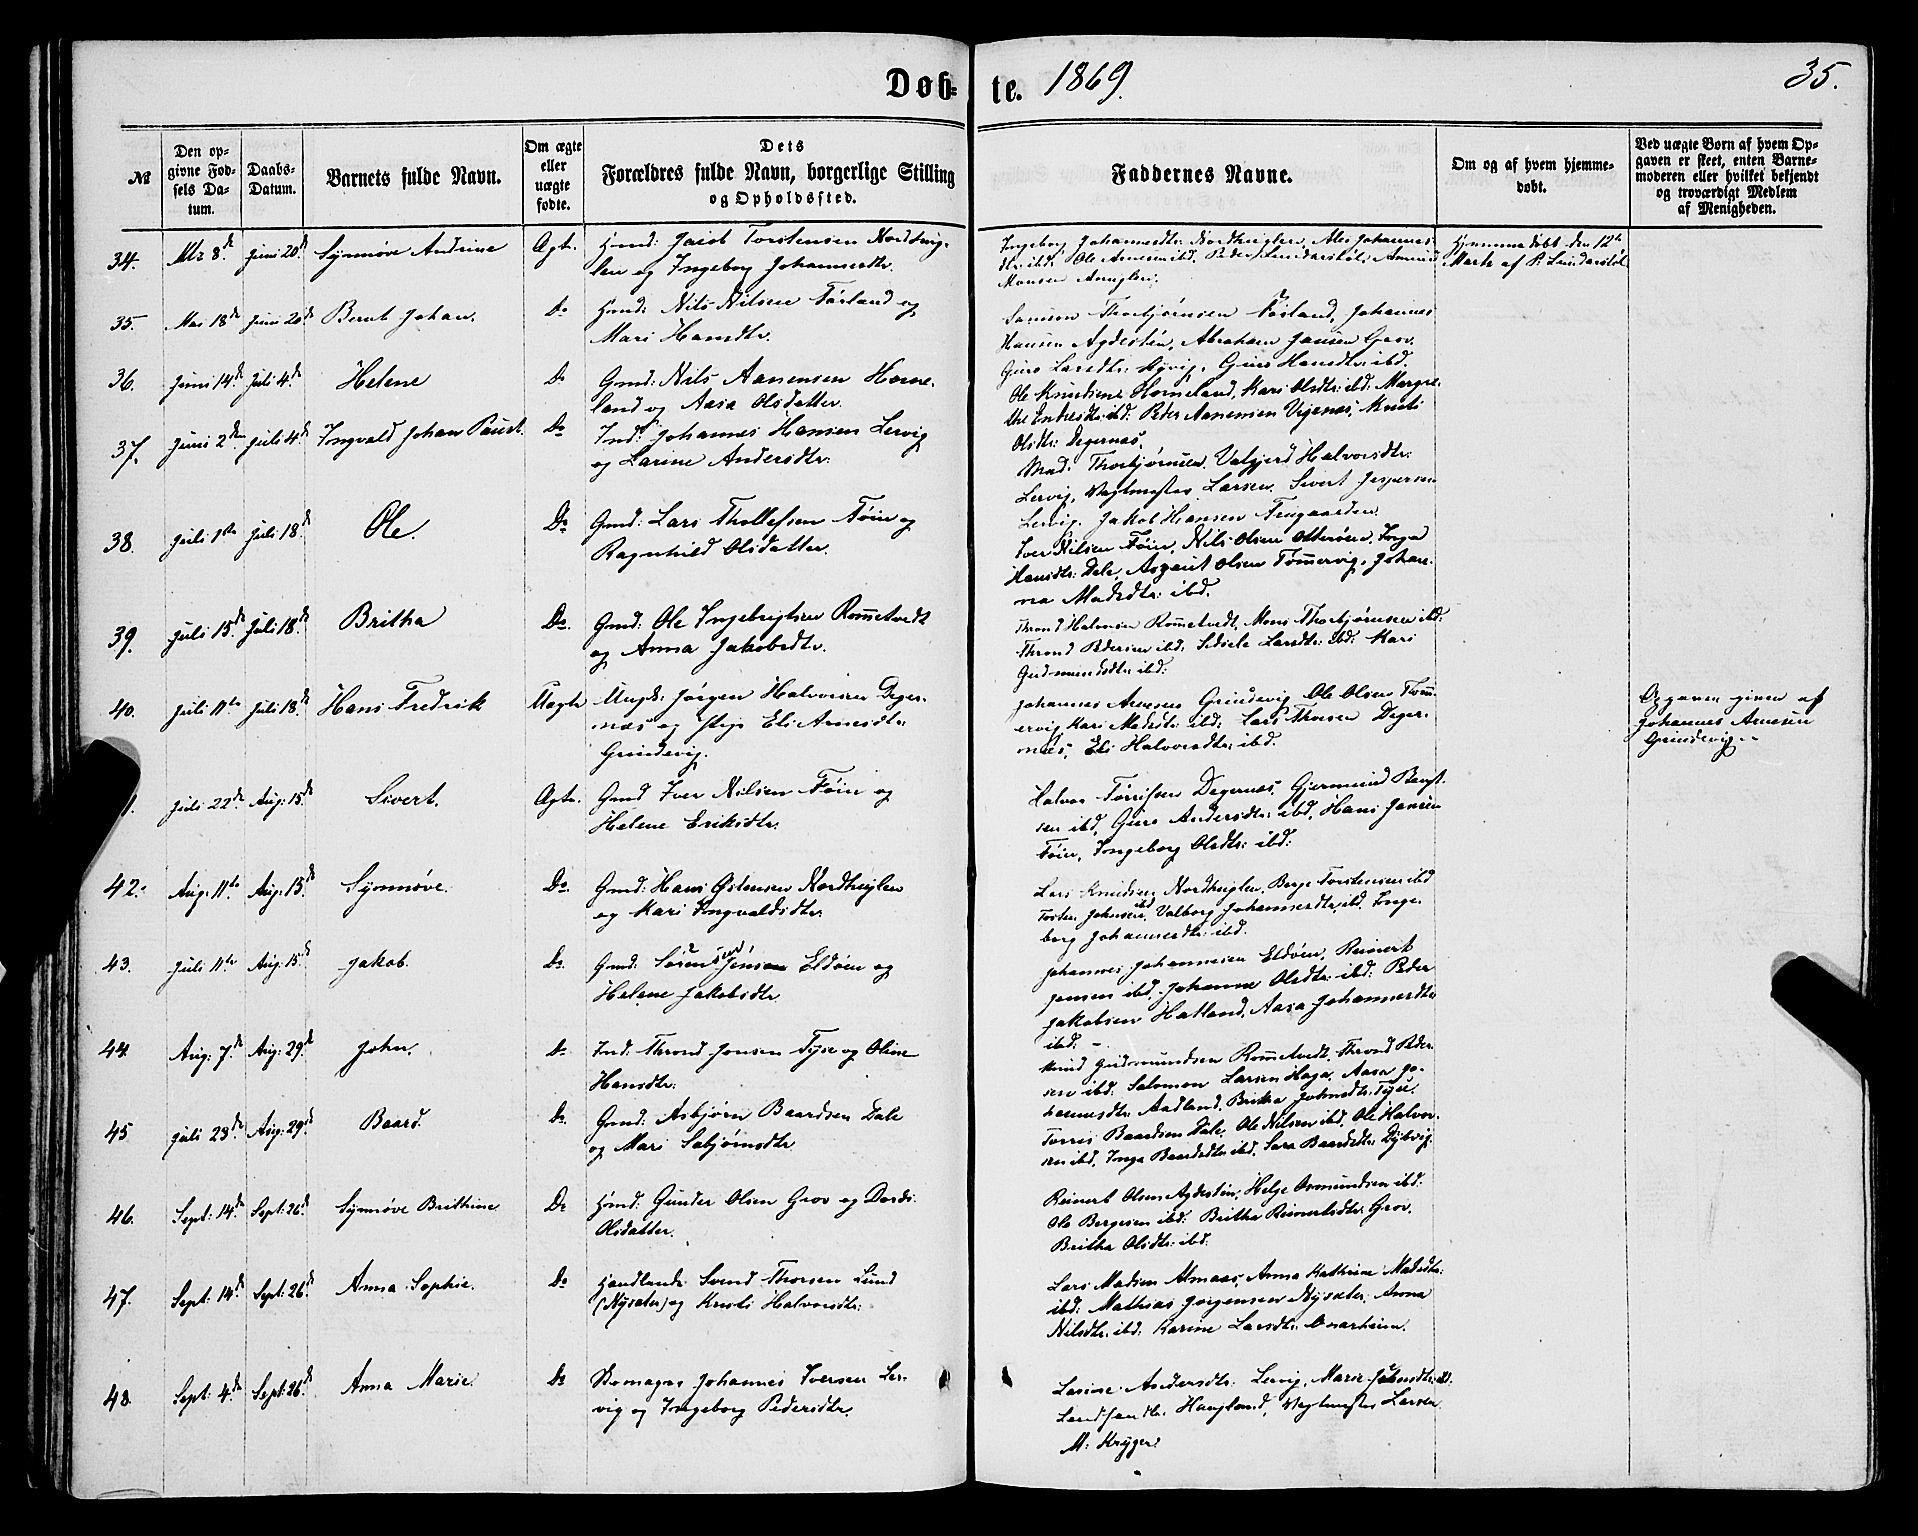 Døb-
te. 1869.
35.
№
Den op-
givne Fød-
sels Da-
tum.
Daabs-
Datum.
Barnets fulde Navn.
Om ægte
eller
uægte
fødte.
Dets
Forældres fulde Navn, borgerlige Stilling
og Opholdssted.
Faddernes Navne.
Om og af hvem hjemme-
døbt.
Ved uægte Børn af hvem Op-
gaven er skeet, enten Barne-
moderen eller hvilket bekjendt
og troværdigt Medlem
af Menigheden.
34. 8de Juni 20de Synnøve Andrine Ægte Jacob Torstensen Nordhug-
len og Ingeborg Johannesdtr.
Ingeborg Johannesdtr. Nordhuglen, Johannes-
dtr. ibd. Ole Arnesen ibd. Peder Lundarstøl, Amund
Monsen
Hjemmedøbt den 12te
Marts af P. Lundarstøl
35. Mai 18de Juni 20de Bernt Johan. Do Nils Nilsen Førland og
Mari Hansdtr.
Samson Thorbjørnsen Førland, Johannes
Hansen Agdestein, Abraham Jansen Grov,
Guro Larsdtr. Guro Hansdtr. ibd.
36. Juni 14de Juli 4de Helene Do Gmd: Nils Aanensen Horne-
land og Aasa Olsdatter.
Ole Knudsen Horneland, Kari Olsdtr. ibd. Margre-
the ibd: Peder Aanensen Vigenes,
Olsdtr: Degernæs.
37. Juni 2den Juli 4de Ingvald Johan Do Ind: Johannes Hansen Lervig
og Larine Andersdtr.
Mad. Thorbjørnsen, Valgjerd Halvorsdtr:
Lervig, Vagtmester Larsen, Sivert Jespersen
Lervig. Jakob Hansen
38. Juli 1ste Juli 18de Ole. Do Gmd: Lars Thollefsen Føien og
Ragnhild Olsdatter.
Iver Nilsen Føien, Nils Olsen Otterøen, Inga
Hansdtr: Dale, Asgaut Olsen Tømmervig, Johan-
na Madsdtr: ibd.
39. Juli 15de Juli 18de Britha Do. Gmd: Ole Ingebrigtsen Rommetvedt
og Anna Jakobsdtr.
Thrond Halvorsen Rommetvedt, Mons Thorbjørnsen ibd:
Thrond Pedersen ibd: Larsdtr: ibd: Kari
Gudmundsdtr ibd:
40. Juli 11te Juli 18de Hans Fredrik Uægte Ungk: Jørgen Halvorsen Deger-
næs og Pige Eli Arnesdtr.
Grindevig.
Johannes Arnesen Grindevig, Ole Olsen Tømm-
ervig, Kari Madsdtr: ibd: Lars Thorsen Deger-
næs, Eli Halvorsdtr: ibd.
Opgaven given af
Johannes Arnesen
Grindevig.
Juli 22de Aug: 15de Sivert. Ægte. Gmd Iver Nilsen Føien og
Helene Eriksdtr.
Halvor Tørrisen Degernæs, Gjermund Bengt-
sen ibd, Guro Andersdtr: ibd, Hans Jansen
Føien, Ingeborg Olsdtr: ibd:
42. Aug: 11te Aug: 15de Synnøve. Do. Gmd: Hans Østensen Nordhuglen
og Mari Ingvaldsdtr.
Lars Knudsen Nordhuglen, Berge Torstensen ibd
Tosten Johnsen ibd, Valborg Johannesdtr. ibd. Inge-
borg Johannesdtr. ibd.
43. Juli 11te Aug: 15de Jakob. Do. Gmd: Sørens Jensen Eldøen og
Helene Jakobsdtr.
Johannes Johannessen Eldøen, Reinert
Jensen ibd, Johanne Olsdtr: ibd: Peder
Jakobsen Hatland, Aasa Johannesdtr.
ibd: -
44. Aug: 7de Aug: 29de John. Do Ind: Thrond Jonsen Tyse og Oline
Hansdtr:
Knud Gudmundsen Rommetvedt, Thrond Peder-
sen ibd: Salomon Larsen Haga, Aasa Jo-
hannesdtr: Aadland, Britha Johnsdtr: Tyse.
45 Juli 23de Aug: 29de Baard. Do Gmd: Asbjørn Baardsen Dale
og Mari Sebjørnsdtr
Torris Baardsen Dale, Ole Nilsen ibd, Ole Halvor-
sen ibd, Inga Baardsdtr ibd, Sara Baardsdtr. Dybvig.
46. Sept: 14de Sept: 26de Synnøve Brithine Do Gunder Olsen Grov og Dordi
Olsdatter.
Reinert Olsen Agdestein, Helge Osmundsen ibd:
Ole Bergesen ibd: Britha Reinertsdtr: Grov.
Britha Olsdtr: ibd:
47. Sept: 14de Sept: 26de Anna Sophie. Do Handlende Svend Thorsen Lund
(Nysæter) og Kristi Halvorsdtr:
Lars Madsen Almaas, Anna Kathrine Madsdtr:
ibd: Mathias Jørgensen Nysæter, Anna
Nilsdtr. ibd: Karine Larsdtr: Onarheim.
48. Sept: 4de Sept: 26de Anna Marie. Do Skomager Johannes Iversen Ler-
vig og Ingeborg Pedersdtr.
Larine Andersdtr. Lervig, Marie Johnsdtr: ibd:
Haugland, Vagtmester Larsen.
M: Krüger.